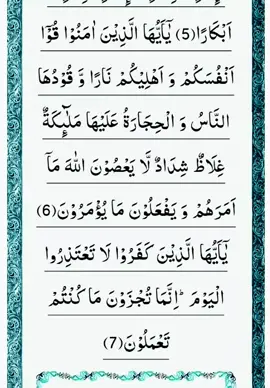 اَبْكَارًا(5) یٰۤاَیُّهَا الَّذِیْنَ اٰمَنُوْا قُوْۤا
اَنْفُسَكُمْ وَ اَهْلِیْكُمْ نَارًا وَّ قُوْدُهَا
النَّاسُ وَ الْحِجَارَةُ عَلَیْهَا مَلٰٓىٕكَةٌ
غِلَاظٌ شِدَادٌ لَّا یَعْصُوْنَ اللّٰهَ مَاۤ
اَمَرَهُمْ وَ یَفْعَلُوْنَ مَا یُؤْمَرُوْنَ(6)
یٰۤاَیُّهَا الَّذِیْنَ كَفَرُوْا لَا تَعْتَذِرُوا
الْیَوْمَؕ-اِنَّمَا تُجْزَوْنَ مَا كُنْتُمْ
تَعْمَلُوْنَ(7)